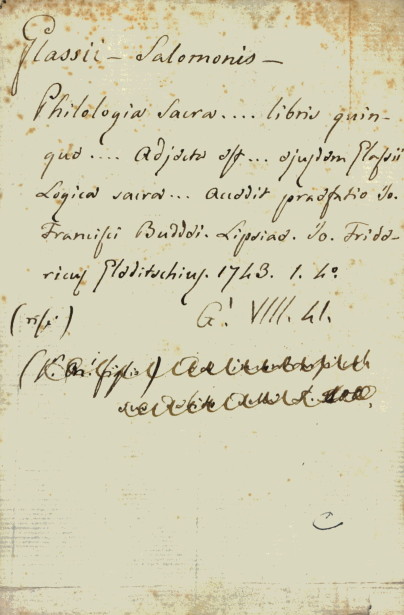 Glassii - Salomonis -
Philologia Sacra .... libris quin-
que .... Adjecta est ... ejusdem Glassii
Logica sacra ... Accedit praefatio Jo.
Francisci Buddei. Lipsiae. Jo. Fride-
ricus Gleditschius. 1743. 1. 4º
G¹ VIII. 41.